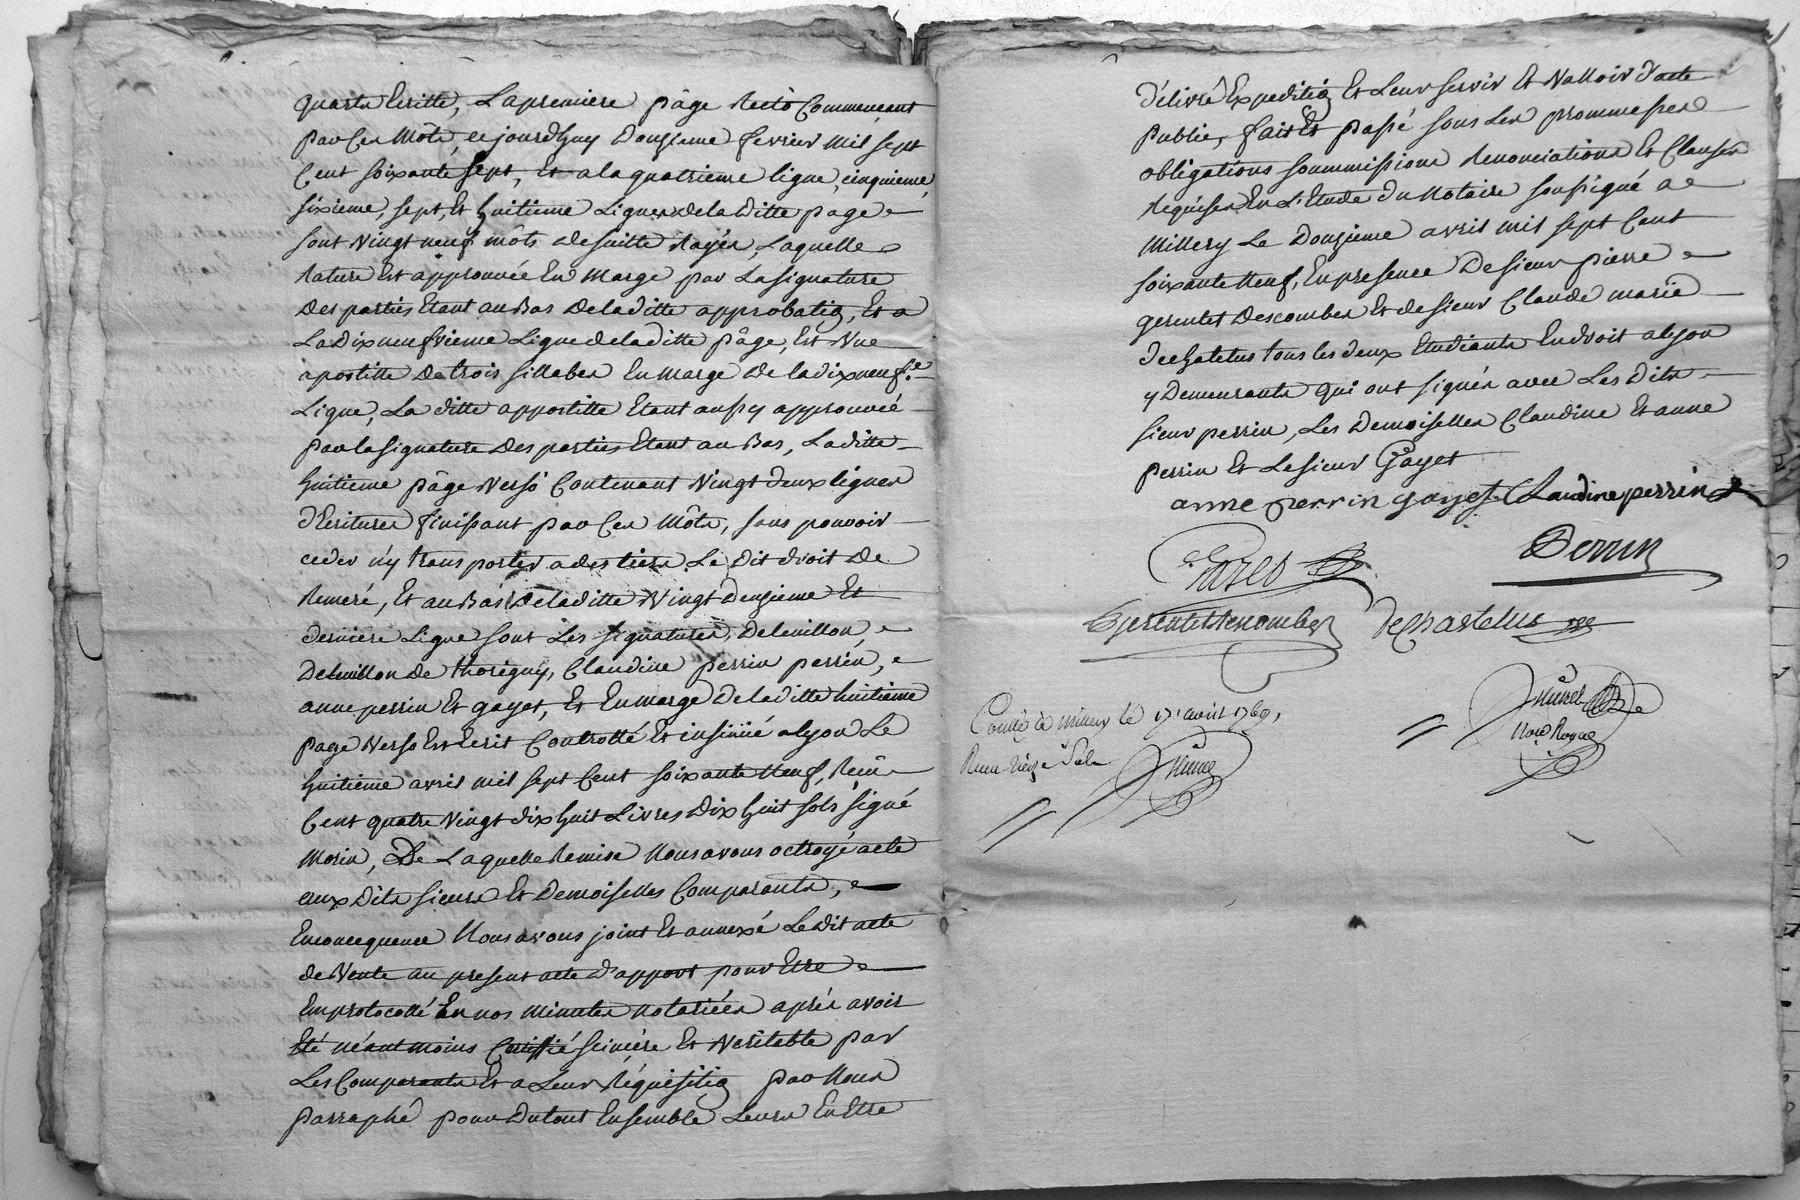 quarta Ecritte, La premiere pâge Recto Commençant
par Ces Môts, ce jourdhuy Douzieme fevrier mil sept
Cent soixante sept, Et a la quatrieme ligne, cinquieme,
sixieme, sept, Et huitieme Lignes de la Ditte page
sont Vingt neuf môts de suitte Rayés, Laquelle
Rature Est approuvée En Marge par La signature
Des parties Etant au Bas De la ditte approbatiō, Et a
La Dix neufvieme Ligne de la ditte pâge, Est Une
apostille De trois sillabes En Marge De la dix neufe
Ligne, La ditte appostille Etant aussy approuvée
par la signature Des parties Etant au Bas, La ditte
huitieme pâge Verso Contenant Vingt deux lignes
d'Ecritures finissant par Ces Môts, sans pouvoir
ceder n'y transporter a des tiers Le Dit droit De
Remeré, Et au Bas De la ditte Vingt Deuzieme Et
derniere Ligne sont Les signatures, Deleuillon,
Deleuillon De thorigny, Claudine perrin perrin,
anne perrin Et gayet, Et En marge De la ditte huitieme
page Verso Est Ecrit Controllé Et insinüé a Lyon Le
huitieme avril mil sept Cent soixante Neuf, Reçû
Cent quatre Vingt dix huit Livres Dix huit sols signé
Morin, De Laquelle Remise Nous avons octroyé acte
aux Dits sieurs Et Demoiselles Comparants,
En consequence Nous avons joint Et annexé Le Dit acte
de Vente au present acte d'apport pour Etre
Emprotocollé En nos Minutes notariées aprés avoir
Eté néantmoins Certiffié sincére Et Veritable par
Les Comparants Et a Leur Réquisitiō par Nous
parraphé pour Du tout Ensemble Leurs En Etre
délivré Expeditiō Et Leur servir Et Valloir d'acte
Public, fait Et passé sous Les prommesses
obligations soummissions Renonciations Et Clauses
Requises En L'Etude du Notaire soussigné a
Millery Le Douzieme avril mil sept Cent
soixante Neuf, En presence De sieur pierre
gerentet Descombes Et de sieur Claude marie
dechatelus tous les deux Etudiants En droit a lyon
y Demeurants qui ont signés avec Les Dits
sieur perrin, Les Demoiselles Claudine Et anne
perrin Et Le sieur Gayet
anne perrin gayet Claudine perrin
Perrin
Gerentet Descombes dechastelus
Conllé a millery le 17 avril 1769,
Notre Royal